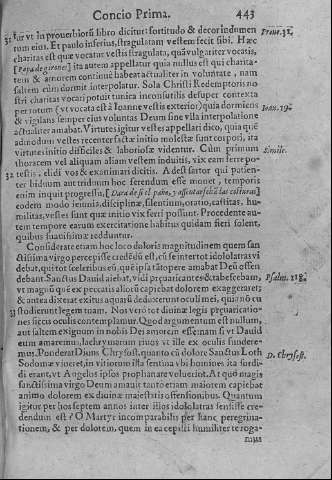 Concio Prima. 443
31 tur vt in prouerbiorū libro dicitur: fortitudo & decor indumen Prouer. 31.
tum eius. Et paulo inferius, stragulatam vestem fecit sibi. Hæc
charitas est quæ vocatur vestis stragula, quā vulgariter vocatis,
[Ropa de girones] ita autem appellatur quia nullus est qui charita-
tem & amorem continuè habeat actualiter in voluntate, nam
saltem cùm dormit interpolatur. Sola Christi Redemptoris no
stri charitas vocari potuit tunica inconsutilis desuper contexta
per totum (vt vocata est à Ioanne vestis exterior) quia dormiens Ioan. 19.
& vigilans semper eius voluntas Deum sine vlla interpolatione
actualiter amabat. Virtutes igitur vestes appellari dico, quia quē
admodum vestes recenter factæ initio molestæ sunt corpori, ita
virtutes initio difficiles & laboriosæ videntur. Cùm primum Simile.
thoracem vel aliquam aliam vestem induitis, vix eam ferre po-
32 testis, elidi vos & exanimari dicitis. Adest sartor qui patien-
ter biduum aut triduum hoc ferendum esse monet, temporis
enim inquit progressu,
eodem modo ieiunia, disciplinæ, silentium, oratio, castitas, hu-
militas, vestes sunt quæ initio vix ferri possunt. Procedente au-
tem tempore earum exercitatione habitus quidam fieri solent,
quibus suauissimæ redduntur.
Considerate etiam hoc loco doloris magnitudinem quem san
ctissima virgo percepisse credēdū est, cū se inter tot idololatras vi
debat, qui tot sceleribus eū, quē ipsa tātopere amabat Deū offen
debant. Sanctus Dauid aiebat, vidi præuaricantes & tabescebam, Psalm. 118.
vt magnū quē ex peccatis aliorū capiebat dolorem exaggeraret;
& antea dixerat exitus aquarū deduxerunt oculi mei, quia nō cu
33 stodierunt legem tuam. Nos verò tot diuinæ legis præuaricatio-
nes siccis oculis contemplamur. Quod argumentum est nullum,
aut saltem exiguum in nobis Dei amorem esse: nam si vt Dauid
eum amaremus, lachrymarum riuos vt ille ex oculis funderе-
mus. Ponderat Diuus Chrysost. quanto cū dolore Sanctus Loth D. Chrysost.
Sodomæ viueret, in vitiorum illa sentina vbi homines ita sordi-
di erant, vt Angelos ipsos prophanare voluerint. At quò magis
sanctissima virgo Deum amauit tanto etiam maiorem capiebat
animo dolorem ex diuinæ maiestatis offensionibus. Quantum
igitur per hos septem annos inter illos idololatras sensisse cre-
dendum est? O Martyr incomparabilis per hanc peregrina-
tionem, & per dolorem, quem in ea cepisti humiliter te roga-
mus